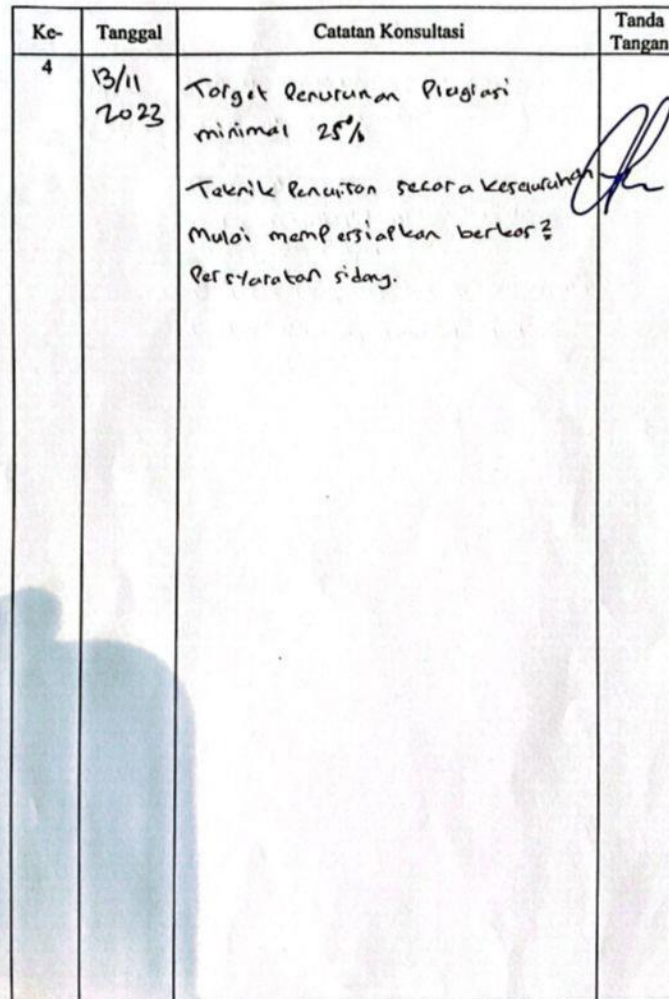 Ke- Tanggal Catatan Konsultasi Tanda Tangan
4 13/11 2023 Target Penurunan Plagiasi
minimal 25%
Teknik Penulisan secara keseluruhan
Mulai mempersiapkan berkas2
Persyaratan sidang.